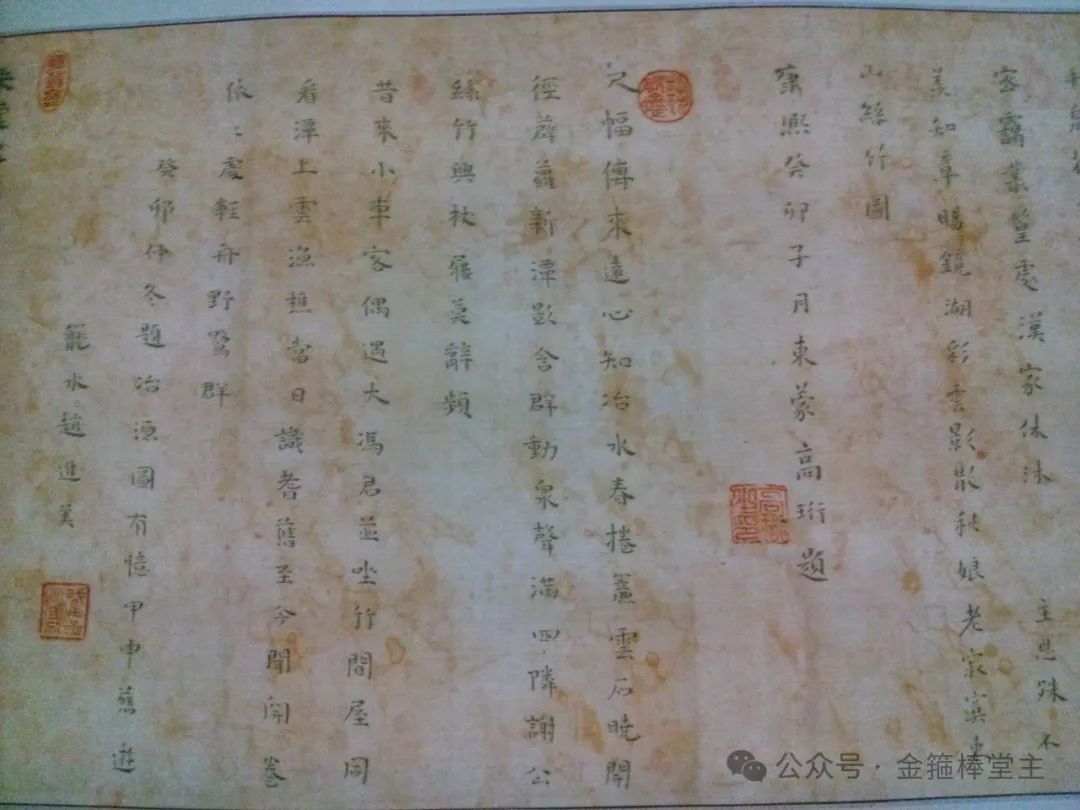 主恩殊不
客窩叢篁處漢家休沐
羡知章賜鏡湖彩雲影散秋娘老寂寞東
山絲竹圖
康熙癸卯子月東蒙高珩題
尺幅傳來遠心知冶水春捲簾雲石曉開
徑薜蘿新潭影含群動泉聲滿四隣謝公
絲竹興杖屨莫辭頻
昔來小車客偶遇大馮君並坐竹間屋同
看潭上雲漁樵當日識耆舊至今聞開卷
依依處輕舟野鷺群
癸卯仲冬題冶源圖有憶甲申舊遊
籠水趙進美
公众号·金箍棒堂主